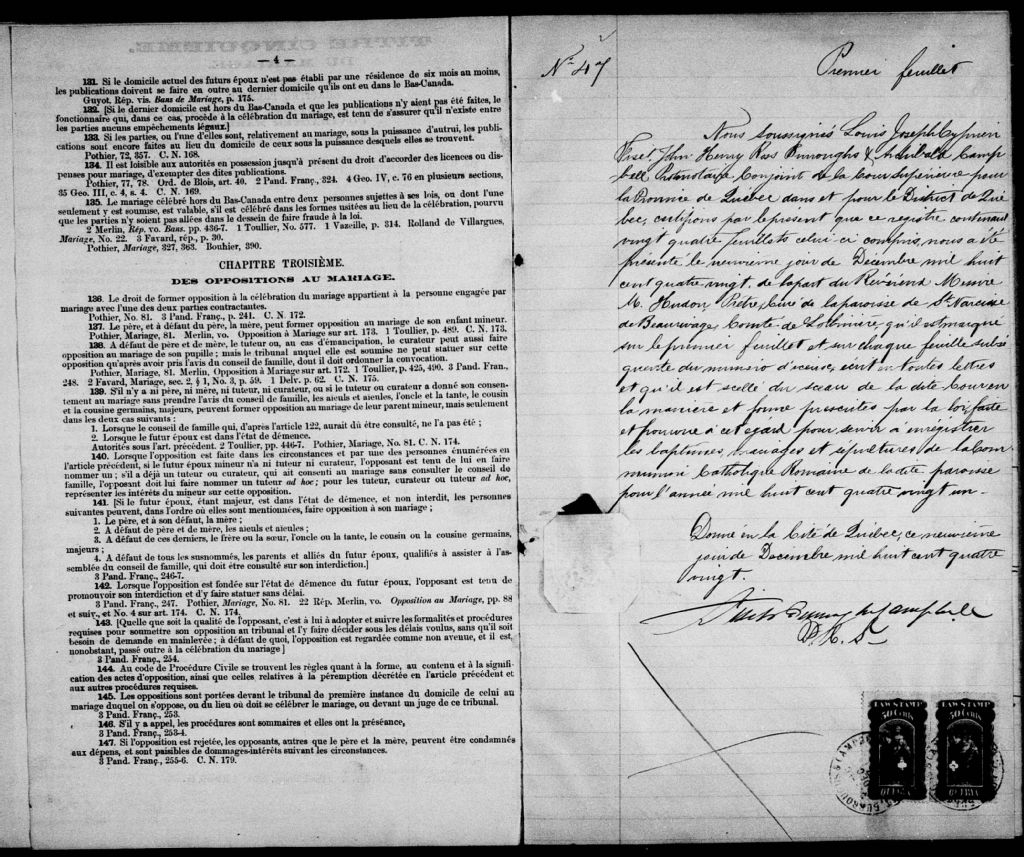 — 4 —
131. Si le domicile actuel des futurs époux n'est pas établi par une résidence de six mois au moins,
les publications doivent se faire en outre au dernier domicile qu'ils ont eu dans le Bas-Canada.
Guyot. Rép. vis. Bans de Mariage, p. 175.
132. [Si le dernier domicile est hors du Bas-Canada et que les publications n'y aient pas été faites, le
fonctionnaire qui, dans ce cas, procède à la célébration du mariage, est tenu de s'assurer qu'il n'existe entre
les parties aucuns empêchements légaux.]
133. Si les parties, ou l'une d'elles sont, relativement au mariage, sous la puissance d'autrui, les publi-
cations sont encore faites au lieu du domicile de ceux sous la puissance desquels elles se trouvent.
Pothier, 72, 357. C. N. 168.
134. Il est loisible aux autorités en possession jusqu'à présent du droit d'accorder des licences ou dis-
penses pour mariage, d'exempter des dites publications.
Pothier, 77, 78. Ord. de Blois, art. 40. 2 Pand. Franç., 324. 4 Geo. IV, c. 76 en plusieurs sections,
35 Geo. III, c. 4, s. 4. C. N. 169.
135. Le mariage célébré hors du Bas-Canada entre deux personnes sujettes à ses lois, ou dont l'une
seulement y est soumise, est valable, s'il est célébré dans les formes usitées au lieu de la célébration, pourvu
que les parties n'y soient pas allées dans le dessein de faire fraude à la loi.
2 Merlin, Rép. vo. Bans. pp. 436-7. 1 Toullier, No. 577. 1 Vazeille, p. 314. Rolland de Villargues,
Mariage, No. 22. 3 Favard, rép., p. 30.
Pothier, Mariage, 327, 363. Bouhier, 390.
CHAPITRE TROISIÈME.
DES OPPOSITIONS AU MARIAGE.
136. Le droit de former opposition à la célébration du mariage appartient à la personne engagée par
mariage avec l'une des deux parties contractantes.
Pothier, No. 81. 3 Pand. Franç., p. 241. C. N. 172.
137. Le père, et à défaut du père, la mère, peut former opposition au mariage de son enfant mineur.
Pothier, Mariage, 81. Merlin, vo. Opposition à Mariage sur art. 173. 1 Toullier, p. 489. C. N. 173.
138. A défaut de père et de mère, le tuteur ou, au cas d'émancipation, le curateur peut aussi faire
opposition au mariage de son pupille; mais le tribunal auquel elle est soumise ne peut statuer sur cette
opposition qu'après avoir pris l'avis du conseil de famille, dont il doit ordonner la convocation.
Pothier, Mariage, 81. Merlin, Opposition à Mariage sur art. 172. 1 Toullier, p. 425, 490. 3 Pand. Fran.,
248. 2 Favard, Mariage, sec. 2, § 1, No. 3, p. 59. 1 Delv. p. 62. C. N. 175.
139. S'il n'y a ni père, ni mère, ni tuteur, ni curateur, ou si le tuteur ou curateur a donné son consen-
tement au mariage sans prendre l'avis du conseil de famille, les aïeuls et aïeules, l'oncle et la tante, le cousin
et la cousine germains, majeurs, peuvent former opposition au mariage de leur parent mineur, mais seulement
dans les deux cas suivants:
1. Lorsque le conseil de famille qui, d'après l'article 122, aurait dû être consulté, ne l'a pas été;
2. Lorsque le futur époux est dans l'état de démence.
Autorités sous l'art. précédent. 2 Toullier, pp. 446-7. Pothier, Mariage, No. 81. C. N. 174.
140. Lorsque l'opposition est faite dans les circonstances et par une des personnes énumérées en
l'article précédent, si le futur époux mineur n'a ni tuteur ni curateur, l'opposant est tenu de lui en faire
nommer un; s'il a déjà un tuteur ou curateur, qui ait consenti au mariage sans consulter le conseil de
famille, l'opposant doit lui faire nommer un tuteur ad hoc; pour les tuteur, curateur ou tuteur ad hoc,
représenter les intérêts du mineur sur cette opposition.
141. [Si le futur époux, étant majeur, est dans l'état de démence, et non interdit, les personnes
suivantes peuvent, dans l'ordre où elles sont mentionnées, faire opposition à son mariage;
1. Le père, et à son défaut, la mère;
2. A défaut de père et de mère, les aïeuls et aïeules;
3. A défaut de ces derniers, le frère ou la sœur, l'oncle ou la tante, le cousin ou la cousine germains,
majeurs;
4. A défaut de tous les susnommés, les parents et alliés du futur époux, qualifiés à assister à l'as-
semblée du conseil de famille, qui doit être consulté sur son interdiction.]
3 Pand. Franç., 246-7.
142. Lorsque l'opposition est fondée sur l'état de démence du futur époux, l'opposant est tenu de
promouvoir son interdiction et d'y faire statuer sans délai.
3 Pand. Franç., 247. Pothier, Mariage, No. 81. 22 Rép. Merlin, vo. Opposition au Mariage, pp. 88
et suiv., et No. 4 sur art. 174. C. N. 174.
143. [Quelque soit la qualité de l'opposant, c'est à lui à adopter et suivre les formalités et procédures
requises pour soumettre son opposition au tribunal et l'y faire décider sous les délais voulus, sans qu'il soit
besoin de demande en mainlevée; à défaut de quoi, l'opposition est regardée comme non avenue, et il est,
nonobstant, passé outre à la célébration du mariage]
3 Pand. Franç., 254.
144. Au code de Procédure Civile se trouvent les règles quant à la forme, au contenu et à la signifi-
cation des actes d'opposition, ainsi que celles relatives à la péremption décrétée en l'article précédent et
aux autres procédures requises.
145. Les oppositions sont portées devant le tribunal de première instance du domicile de celui au
mariage duquel on s'oppose, ou du lieu où doit se célébrer le mariage, ou devant un juge de ce tribunal.
3 Pand. Franç., 253.
146. S'il y a appel, les procédures sont sommaires et elles ont la préséance,
3 Pand. Franç., 253-4.
147. Si l'opposition est rejetée, les opposants, autres que le père et la mère, peuvent être condamnés
aux dépens, et sont paisibles de dommages-intérêts suivant les circonstances.
3 Pand. Franç., 255-6. C. N. 179.
No 47
Premier feuillet
Nous soussignés Louis Joseph Cyprien
Fiset John Henry Ross Burroughs & Archibald Camp
bell Protonotaire Conjoint de la Cour Supérieure pour
la Province de Québec dans et pour le District de Qué
bec, certifions par le present que ce registre contenant
vingt quatre feuillets celui ci compris, nous a été
présenté le neuvième jour de Décembre mil huit
cent quatre vingt, de la part du Révérend Messire
M. Hudon, Prêtre, Curé de la paroisse de St Narcisse
de Beaurivage, Comté de Lotbinière, qu'il est marqué
sur le premier feuillet et sur chaque feuille subsé
quente du numéro d'iceux, écrit en toutes lettres
et qu'il est scellé du sceau de la dite Cour en
la manière et forme prescrites par la loi, faite
et pourvue à cet egard pour servir à enregistrer
les baptêmes, mariages et sépultures de la Com
munion Catholique Romaine de la dite paroisse
pour l'année mil huit cent quatre vingt un.
Donné en la Cité de Québec, ce neuvième
jour de Décembre mil huit cent quatre
vingt.
Fiset Burroughs Campbell
P. C. S.
LAW STAMP
50 Cents
QUEBEC
LAW STAMP
50 Cents
QUEBEC